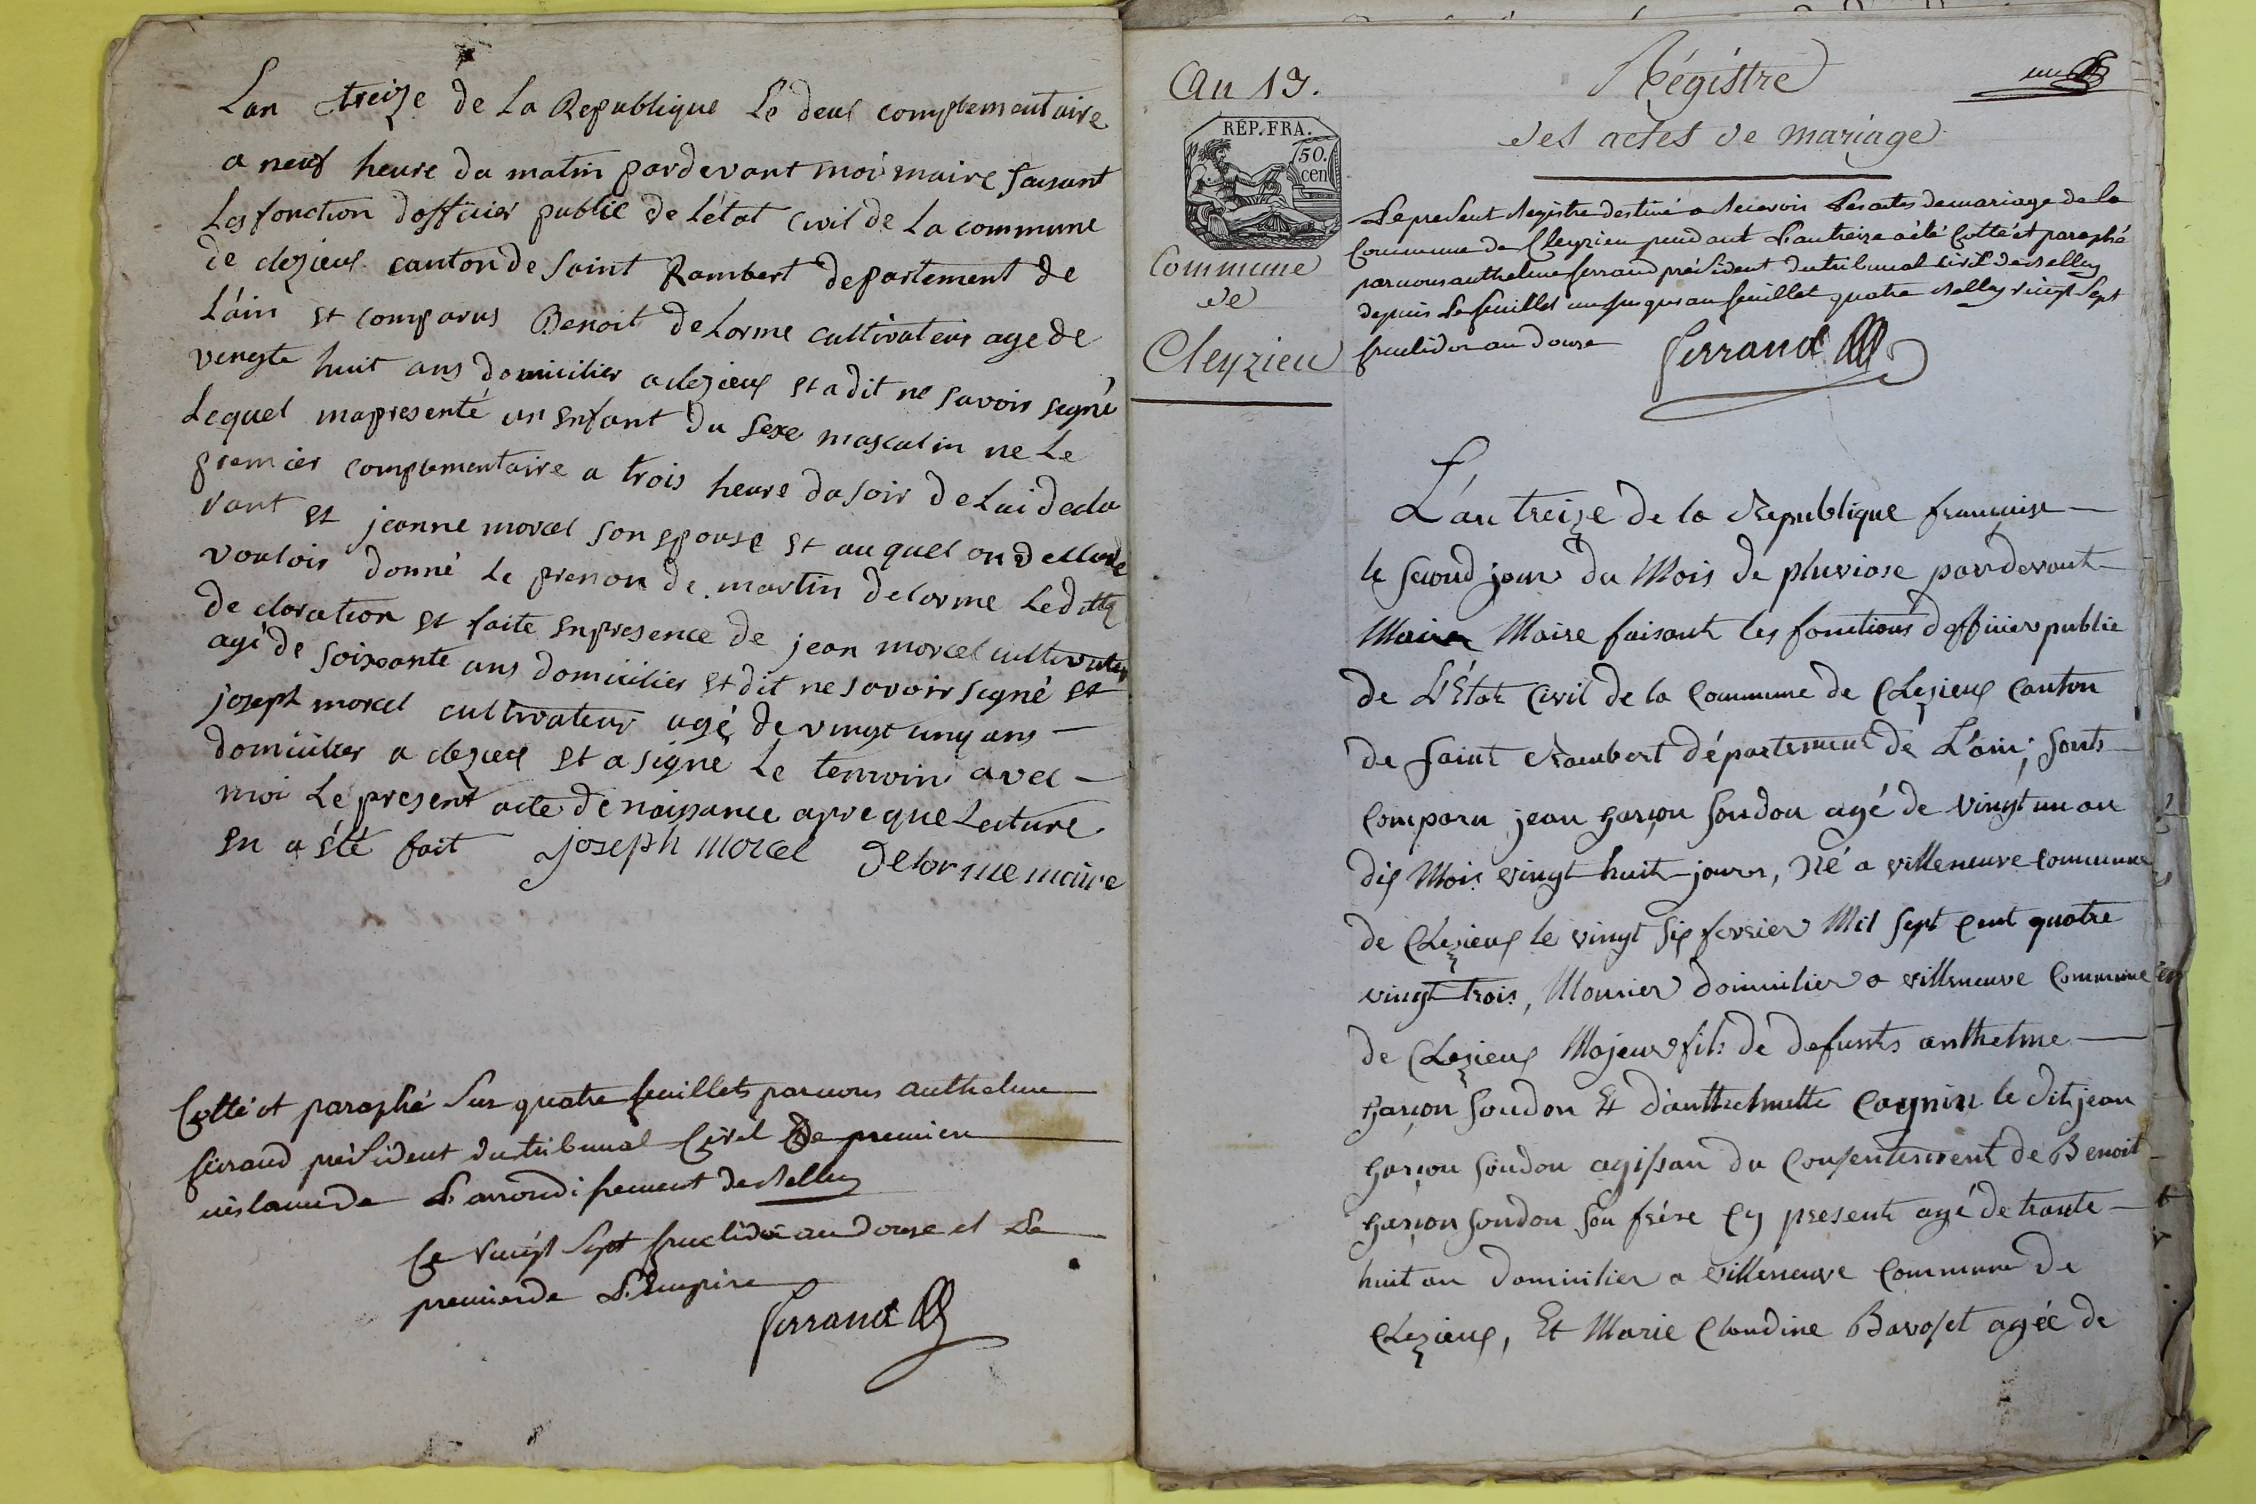 Lan treize de La Republique Le deus complementaire
a neuf heure du matin pardevant moi maire faisant
Les fonction dofficier public de L'état Civil de La commune
de clezieux canton de saint Rambert departement de
L'ain et comparus Benoit delorme cultivateur age de
vengte huit ans domicilier a clezieux et a dit ne savoir segné
Lequel mapresenté un enfant du sexe masculin ne Le
premier complementaire a trois heure du soir de Lui decla
rant et jeanne morcel son epouse et auquel on declare
vouloir donné Le prenon de martin delorme Leditte
de claration et faite enpresence de jean morcel cultivateur
agé de soixoante ans domicilier et dit ne savoir segné et
joseph morcel cultivateur agé de vingt cinq ans
domicilier a clezieux et a signé Le temoin avec
moi Le present acte de naissance apreque Lecture
en a été fait joseph morcel delorme maire
Cotté et paraphé sur quatre feuillets par nous anthelme
ferrand président du tribunal Civil de premiere
instance de L'arrondissement de Belley
Ce vingt sept fructidor an douze et De
premier de L'Empire
ferrand
An 13.
REP. FRA.
50. cen
Commune
de
Cleyzieu
Régistre
des actes de mariage
un
Le present Registre destiné a Recevoir Les actes de mariage de la
Commune de Cleyzieu pendant L'an treize a été Cotté et paraphé
par nous anthelme ferrand président du tribunal Civil de Belley
depuis Le feuillet un jusques au feuillet quatre Belley vingt sept
fructidor an douze ferrand
L'an treize de la Republique française
le second jour du Mois de pluviose pardevant
Maire Maire faisant les fonctions d'officier public
de L'État Civil de la Commune de Clezieux Canton
de Saint Rambert département de L'ain; sont
Comparu jean garçon soudon agé de vingt un an
dix Mois vingt huit jours, Né a villeneuve commune
de Clezieux le vingt six fevrier Mil sept cent quatre
vingt trois, Monier domicilier a villeneuve Commune
de Clezieux Majeur fils de defunts anthelme
garçon soudon Et d'anthelmette Cognin le dit jean
garçon soudon agissan du Consentement de Benoit
garçon soudon son frére Cy present agé de trante
huit an domicilier a villeneuve Commune de
Clezieux, Et Marie Claudine Bavoset agée de